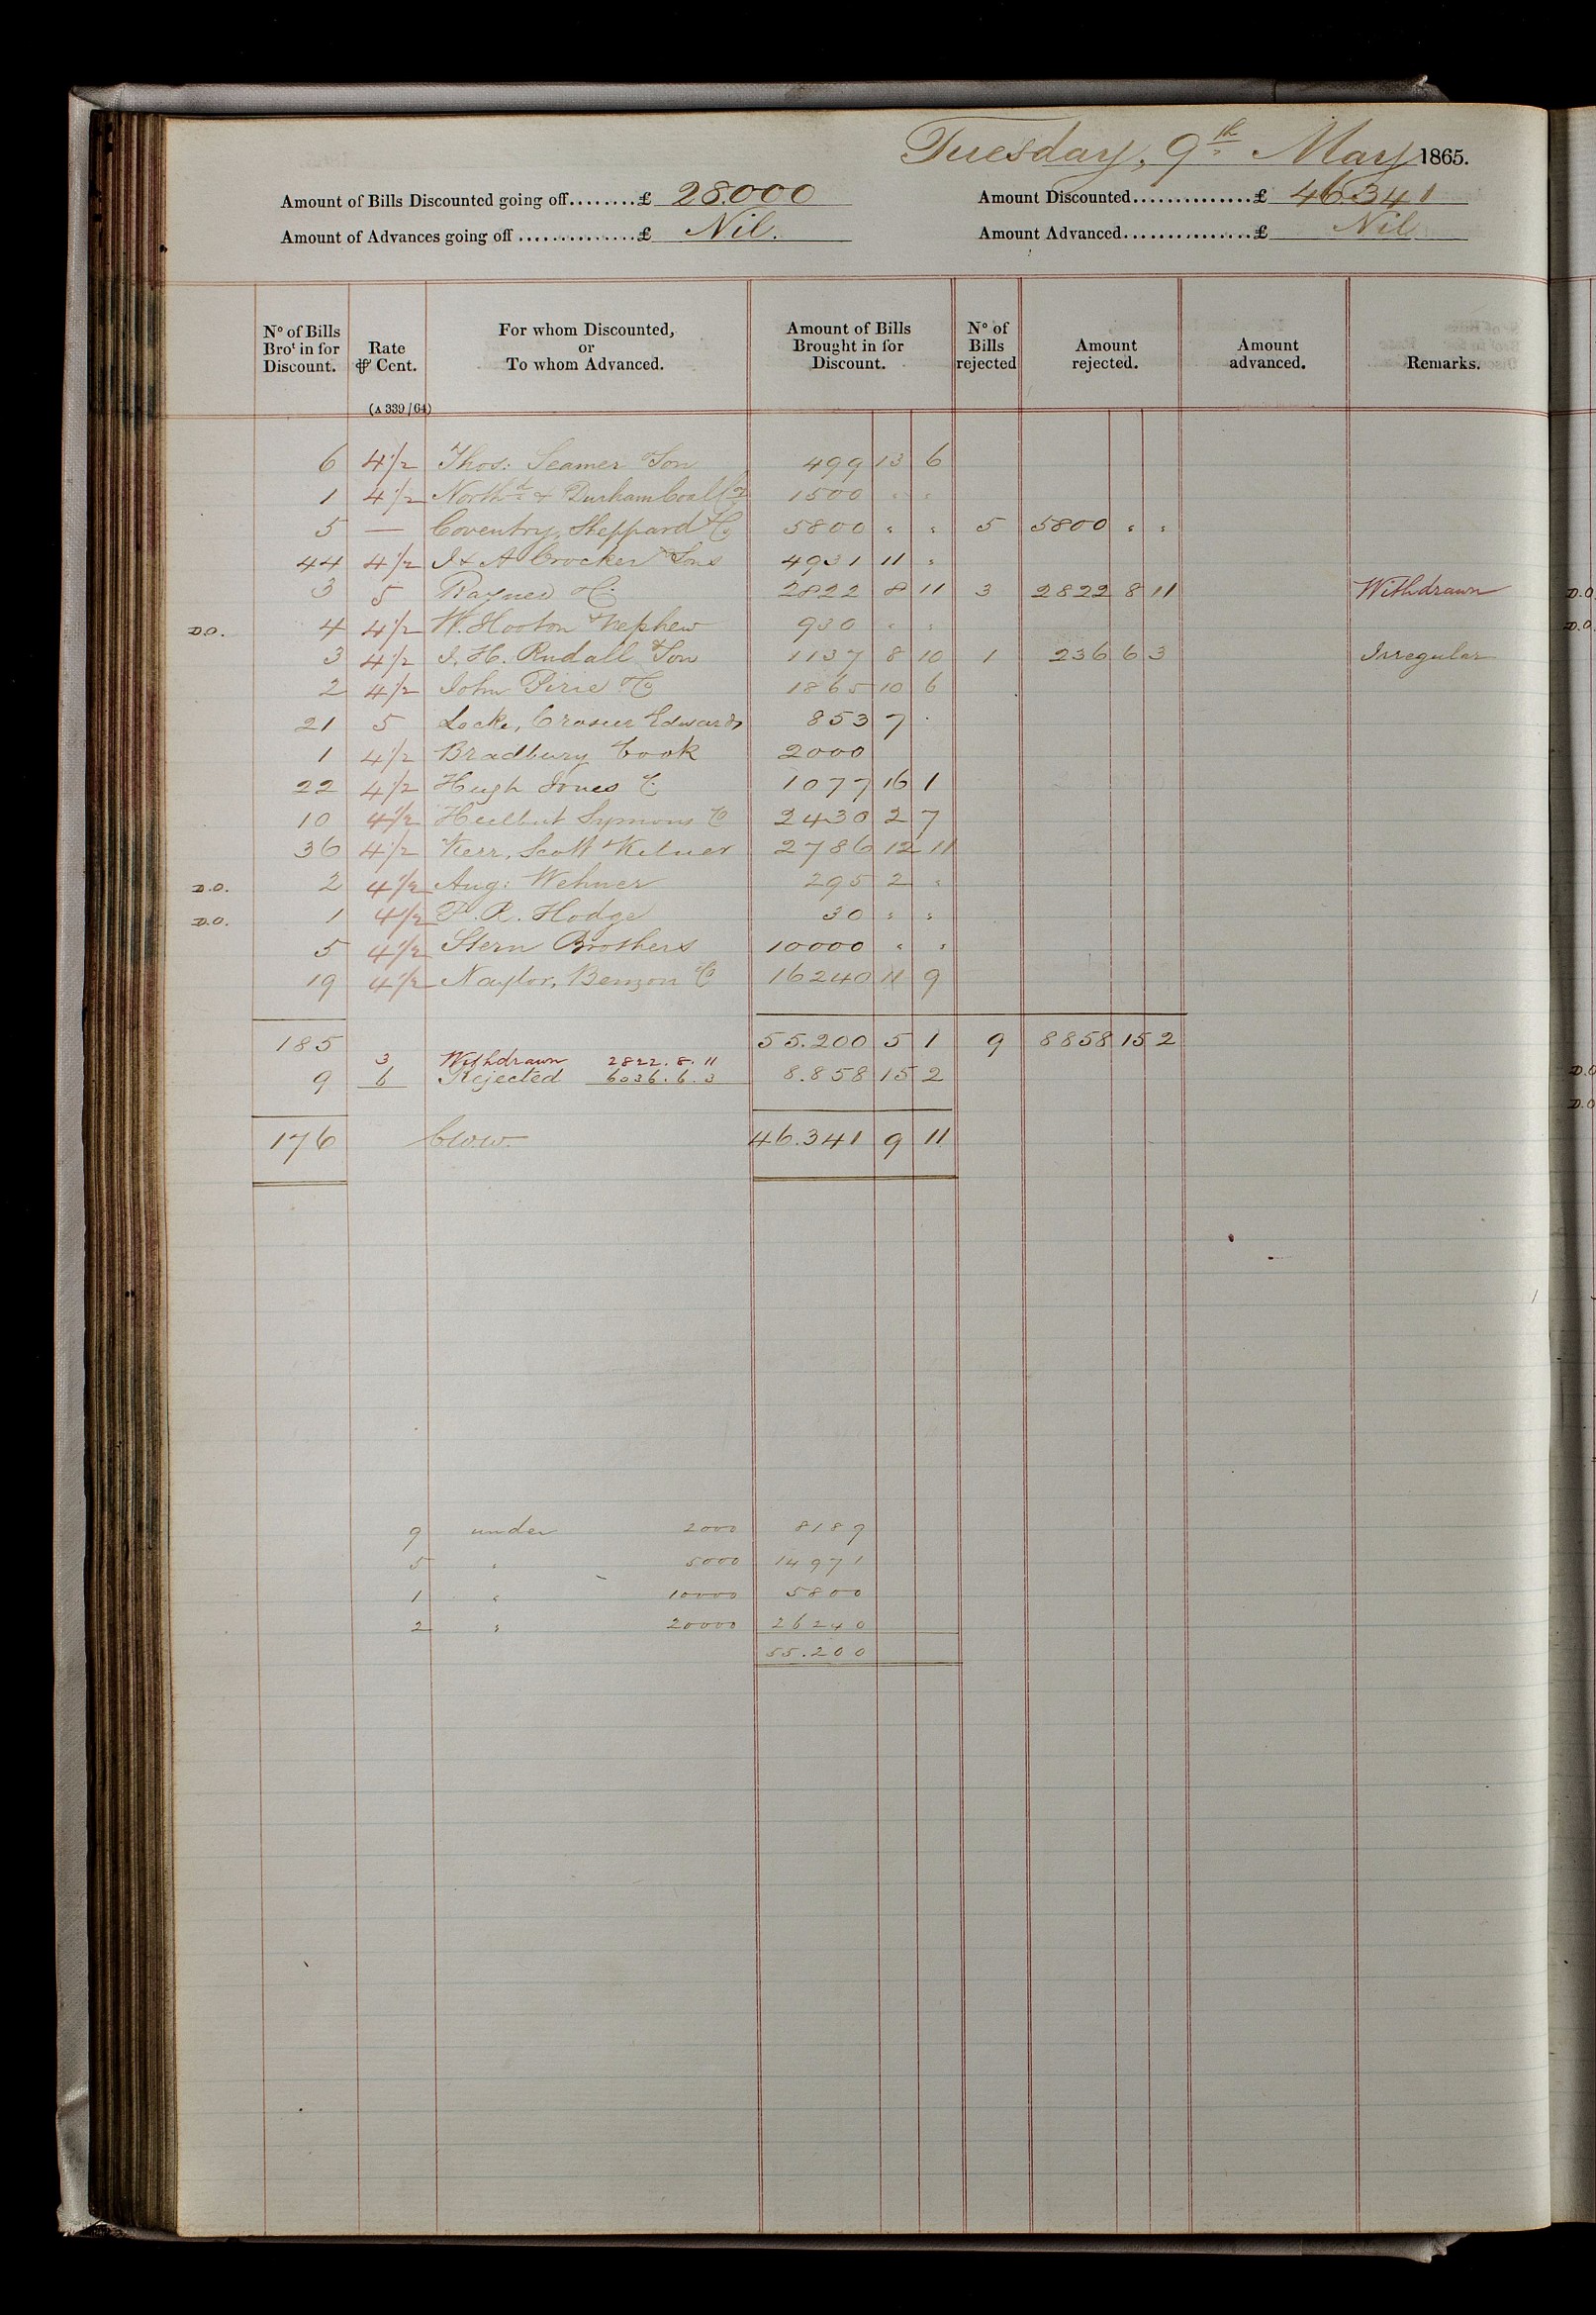 Tuesday, 9th May 1865.
Amount of Bills Discounted going off........£ 28.000 Amount Discounted...............£ 46341
Amount of Advances going off ...............£ Nil. Amount Advanced................£ Nil
No of Bills Brot in for Discount. Rate ⅌ Cent. For whom Discounted, or To whom Advanced. Amount of Bills Brought in for Discount. No of Bills rejected Amount rejected. Amount advanced. Remarks.
(A 339/64)
6 4 1/2 Thos: Seamer & Son 499 13 6
1 4 1/2 Northd & Durham Coal Co 1500 " "
5 — Coventry, Sheppard & Co 5800 " " 5 5800 " "
44 4 1/2 I & A Crocker & Sons 4931 11 "
3 5 Raynes & Co 2822 8 11 3 2822 8 11 Withdrawn D.O.
D.O. 4 4 1/2 W. Hooton & Nephew 930 " " D.O.
3 4 1/2 J. H. Rudall & Son 1137 8 10 1 236 6 3 Irregular
2 4 1/2 John Pirie & Co 1865 10 6
21 5 Locke, Crosier & Edwards 853 7 "
1 4 1/2 Bradbury & Cook 2000
22 4 1/2 Hugh Jones & Co 1077 16 1
10 4 1/2 Symons & Co 2430 2 7
36 4 1/2 Kerr, Scott & Kilner 2786 12 11
D.O. 2 4 1/2 Aug: Wehner 295 2 "
D.O. 1 4 1/2 P. R. Hodge 30 " "
5 4 1/2 Stern Brothers 10000 " "
19 4 1/2 Naylor, Benzon & Co 16240 11 9
185 55.200 5 1 9 8858 15 2
3 Withdrawn 2822.8.11
9 6 Rejected 6036.6.3 8.858 15 2 D.O
D.O
176 46.341 9 11
9 under 2000 8189
5 " 5000 14971
1 " 10000 5800
2 " 20000 26240
55.200